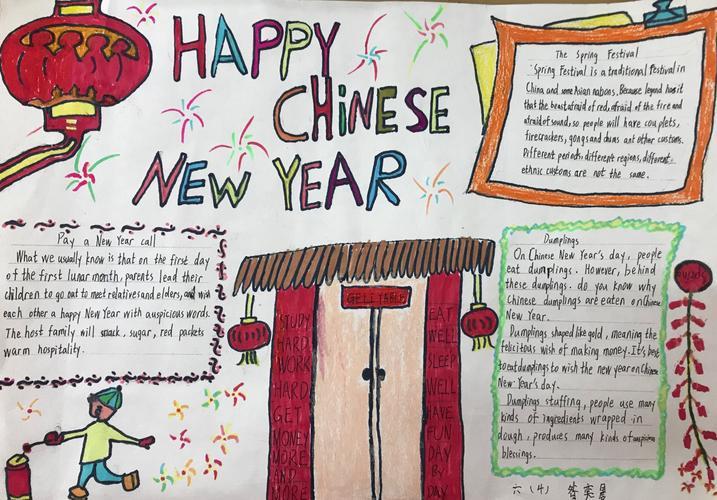 HAPPY
CHINESE
NEW YEAR
The Spring Festival
Spring Festival is a traditional festival in
China and some Asian nations. Because legend has it
that the beast afraid of red, afraid of the fire and
afraid of sound, so people will have couplets,
firecrackers, gongs and drums and other customs.
Different periods, different regions, different
ethnic customs are not the same.
Pay a New Year call
What we usually know is that on the first day
of the first lunar month, parents lead their
children to go out to meet relatives and elders, and wish
each other a happy New Year with auspicious words.
The host family will snack, sugar, red packets
warm hospitality.
GELIYABLE
STUDY
HARD
WORK
HARD
GET
MONEY
MORE
AND
MORE
EAT
WELL
SLEEP
WELL
HAVE
FUN
DAY
BY
DAY
Dumplings
On Chinese New Year's day, people
eat dumplings. However, behind
these dumplings. do you know why
Chinese dumplings are eaten on Chinese
New Year.
Dumplings shaped like gold, meaning the
felicitous wish of making money. It's best
to eat dumplings to wish the new year on Chinese
New Year's day.
Dumplings stuffing, people use many
kinds of ingredients wrapped in
dough, produces many kinds of auspicious
blessings.
六(4)